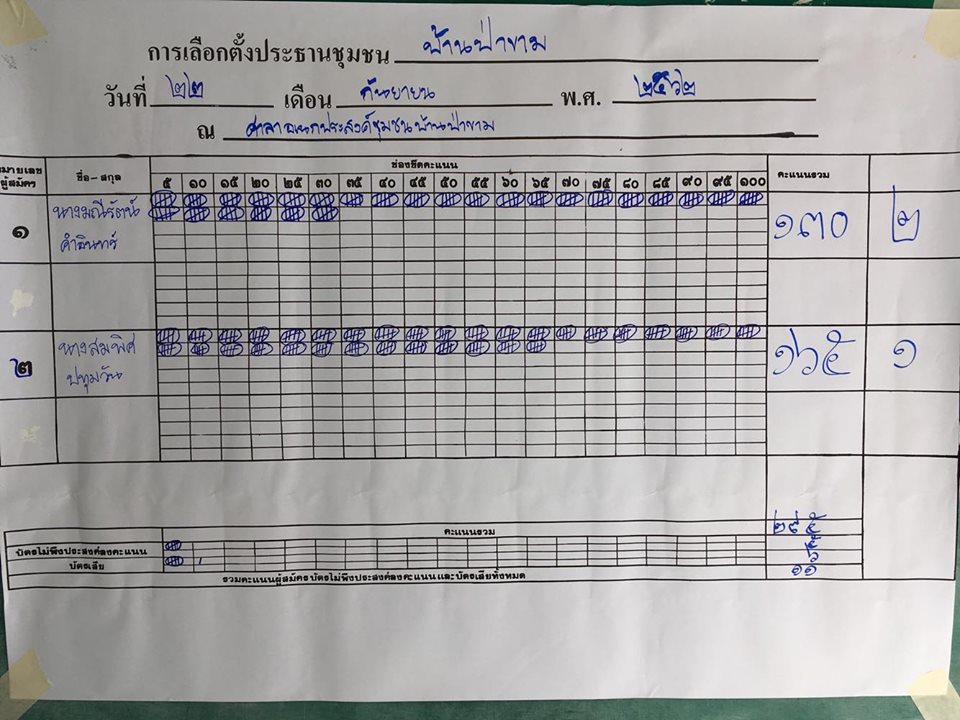 การเลือกตั้งประธานชุมชน บ้านป่าขาม
วันที่ ๒๒ เดือน กันยายน พ.ศ. ๒๕๖๒
ณ ศาลาอเนกประสงค์ชุมชนบ้านป่าขาม
หมายเลขผู้สมัคร ชื่อ-สกุล ช่องขีดคะแนน คะแนนรวม
๕ ๑๐ ๑๕ ๒๐ ๒๕ ๓๐ ๓๕ ๔๐ ๔๕ ๕๐ ๕๕ ๖๐ ๖๕ ๗๐ ๗๕ ๘๐ ๘๕ ๙๐ ๙๕ ๑๐๐
๑ นางมณีรัตน์ ๑๓๐ ๒
คำอินทร์
๒ นางสมพิศ ๑๖๕ ๑
ปทุมวัน
คะแนนรวม ๒๙๕
บัตรไม่พึงประสงค์ลงคะแนน ๕
บัตรเสีย ๖
รวมคะแนนผู้สมัคร บัตรไม่พึงประสงค์ลงคะแนน และบัตรเสียทั้งหมด ๑๑